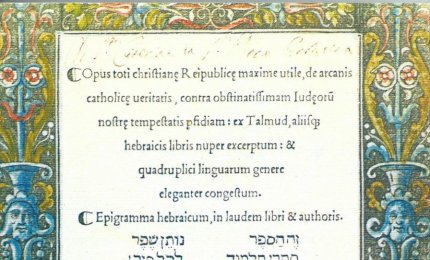 ☾ Opus toti christianę Reipublicę maxime utile, de arcanis
catholicę ueritatis, contra obstinatissimam Iudęorū
nostrę tempestatis ꝑfidiam: ex Talmud, aliisqꝫ
hebraicis libris nuper excerptum: &
quadruplici linguarum genere
eleganter congestum.
☾ Epigramma hebraicum, in laudem libri & authoris.
זה הספר נותן שפר